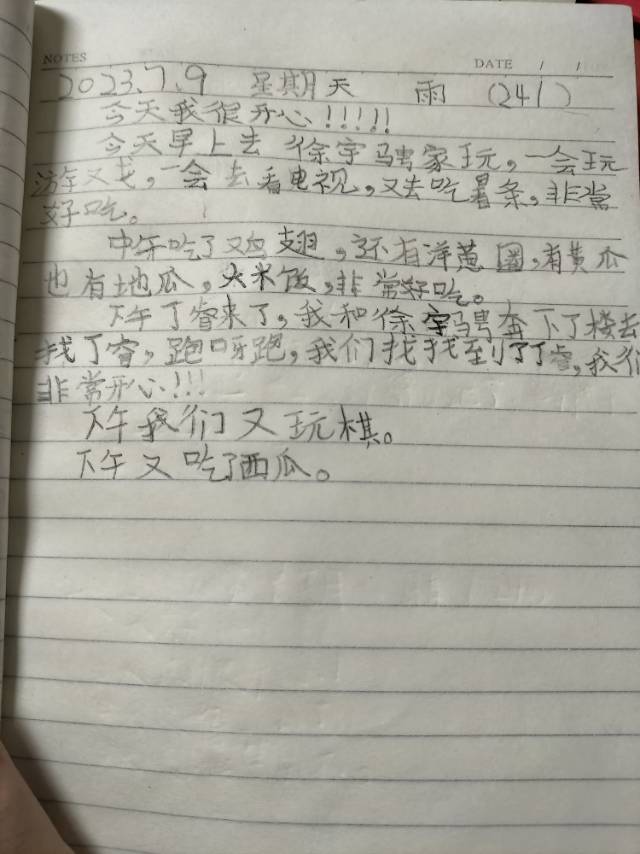 NOTES
DATE / /
2023.7.9 星期天 雨 (241)
今天我很开心!!!!!
今天早上去徐宇骋家玩,一会玩
游戏,一会去看电视,又去吃薯条,非常
好吃。
中午吃了鸡翅,还有洋葱圈,有黄瓜
也有地瓜,大米饭,非常好吃。
下午丁睿来了,我和徐宇骋奔下了楼去
找丁睿,跑呀跑,我们找找到了丁睿,我们
非常开心!!!
下午我们又玩棋。
下午又吃了西瓜。